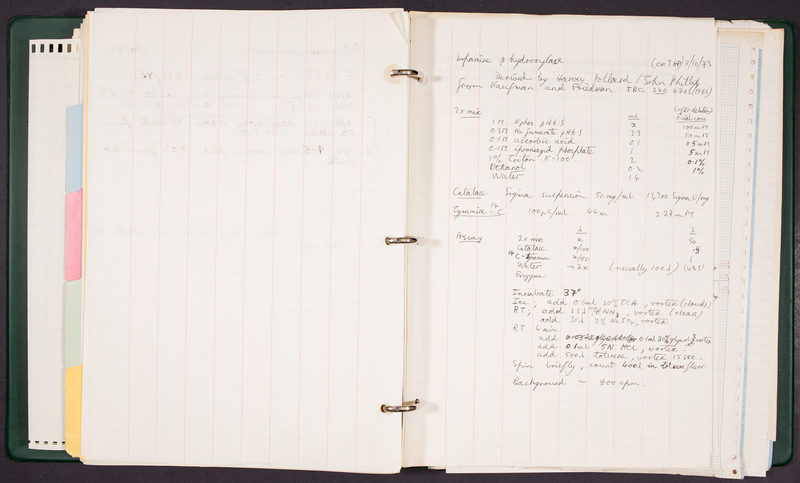 Dopamine β hydroxylase (ex TOP) 9/10/73
Devised by Harvey Pollard / John Phillips
from Kaufman and Friedman JBC 240 4763 (1965)
2x mix mL (after dilution) Final conc
1M Kphos pH 6.5 2 100 mM
0.3M Na fumarate pH 6.5 3.3 50 mM
0.1M ascorbic acid 0.1 0.5 mM
0.1M iproniazid phosphate 1 5 mM
1% Triton X-100 2 0.1%
Ethanol 0.2 1%
Water 1.4
Catalase Sigma suspension 50 mg/ml 13,700 Sigma U/mg
Tyramine-14C 100 µC/ml 44 2.27 mM
Assay λ λ
2x mix x 50
Catalase x/100 .5
14C-Tyramine x/50 1
Water → 2x (usually 100λ)
Enzyme
Incubate 37°
Ice, add 0.1ml 30% TCA, vortex (clouds)
RT, add 25λ NH3, vortex (clear)
add 30λ 7% NaIO4, vortex
RT 4 min
add 0.1ml 30% glycerol, vortex
add 0.1ml 5N HCl, vortex
add 500λ toluene, vortex 15 sec.
Spin briefly, count 400λ in toluene fluor.
Background ~ 800 cpm.